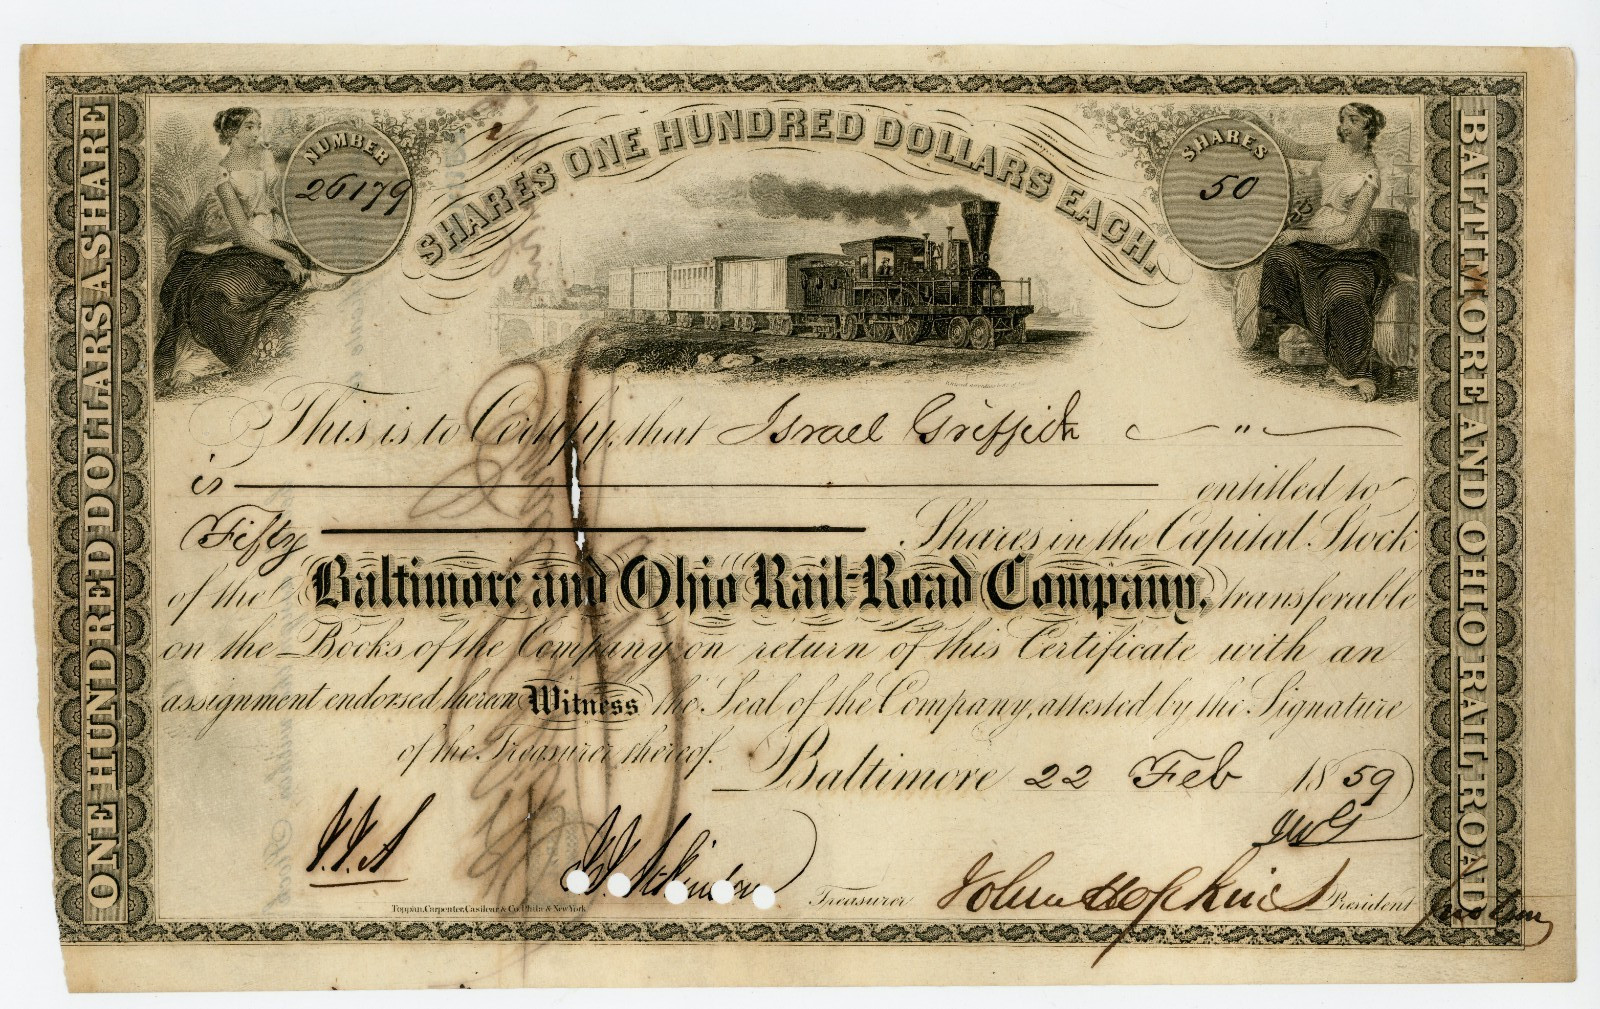 NUMBER
26179
SHARES ONE HUNDRED DOLLARS EACH.
SHARES
50
ONE HUNDRED DOLLARS A SHARE
BALTIMORE AND OHIO RAIL ROAD
This is to Certify, that Israel Griffith "
is entitled to
Fifty Shares in the Capital Stock
of the Baltimore and Ohio Rail-Road Company, transferable
on the Books of the Company on return of this Certificate with an
assignment endorsed hereon Witness the Seal of the Company, attested by the Signature
of the Treasurer thereof.
Baltimore 22 Feb 1859
J.J.A
J.J. Atkinson Treasurer
John Hopkins President
Toppan, Carpenter, Casilear & Co. Phila. & New York